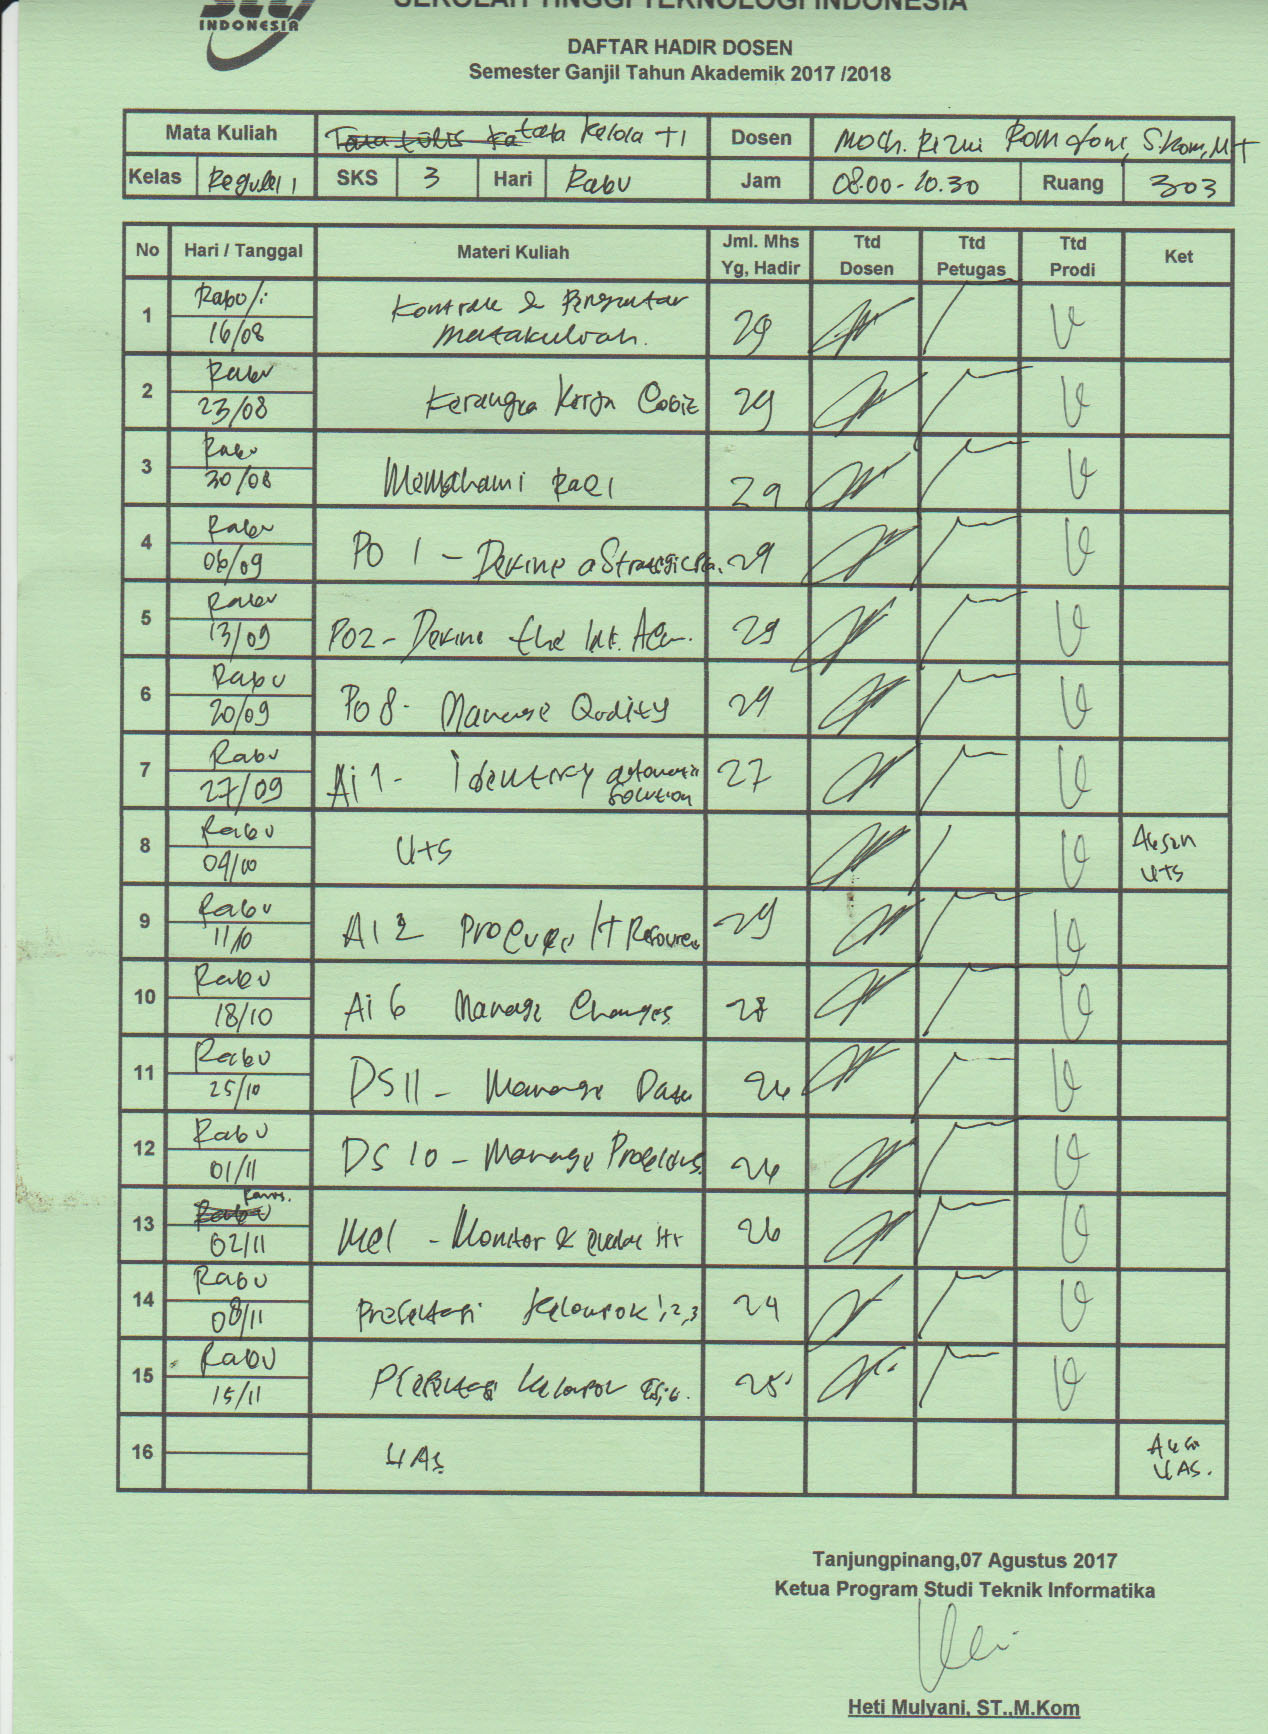 SEKOLAH TINGGI TEKNOLOGI INDONESIA
INDONESIA
DAFTAR HADIR DOSEN
Semester Ganjil Tahun Akademik 2017 /2018
Mata Kuliah tata Kelola TI Dosen Moch. Rizni Romdoni, S.Kom, MT
Kelas Reguler 1 SKS 3 Hari Rabu Jam 08.00 - 10.30 Ruang 303
No Hari / Tanggal Materi Kuliah Jml. Mhs Yg, Hadir Ttd Dosen Ttd Petugas Ttd Prodi Ket
1 Rabu 16/08 Kontrak & Pengantar Matakuliah. 29
2 Rabu 23/08 Kerangka Kerja Cobit 29
3 Rabu 30/08 Memahami RACI 29
4 Rabu 06/09 PO 1 - Define a Strategic 29
5 Rabu 13/09 PO2 - Define the Inf. 29
6 Rabu 20/09 PO 8 - Manage Quality 29
7 Rabu 27/09 Ai 1 - Identify automatic solution 27
8 Rabu 04/10 UTS UTS
9 Rabu 11/10 AI 2 Procure IT Resources 29
10 Rabu 18/10 Ai 6 Manage Changes 28
11 Rabu 25/10 DS 11 - Manage Data 26
12 Rabu 01/11 DS 10 - Manage Problems 26
13 Kamis. 02/11 ME1 - Monitor & 26
14 Rabu 08/11 Presentasi Kelompok 1,2,3 24
15 Rabu 15/11 Presentasi Kelompok 25
16 UAS UAS.
Tanjungpinang,07 Agustus 2017
Ketua Program Studi Teknik Informatika
Heti Mulyani, ST.,M.Kom